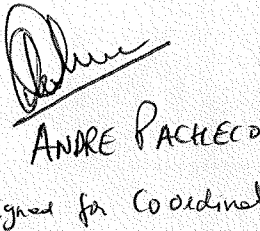 ANDRE PACHECO
igned for Coordinat